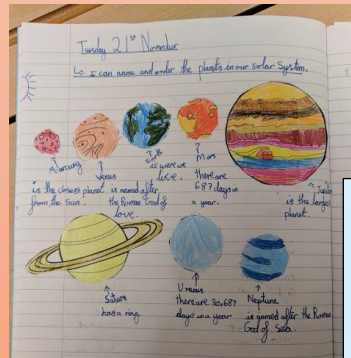 Tuesday 21st November
Lo: I can name and order the planets in our Solar System.
Mercury
is the closest planet
from the Sun.
Venus
is named after
the Roman God of
love.
Earth
is were we
live.
Mars
there are
687 days in
a year.
Jupiter
is the larges
planet.
Saturn
has a ring
Uranus
there are 30,687
days in a year
Neptune
is named after the Roman
God of Sea.